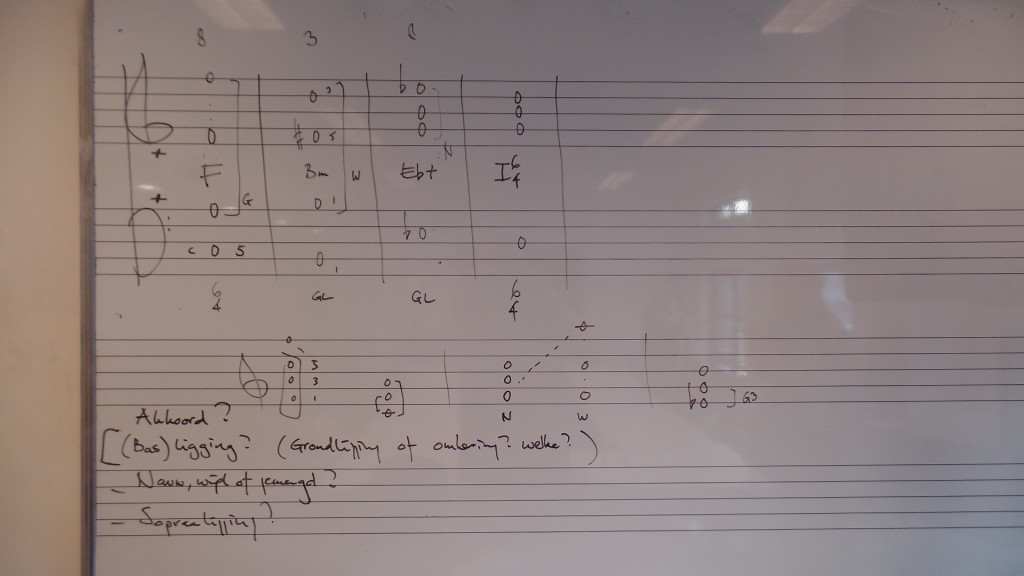 8 3 8
3
♯ 5
♭
N
F G Bm W Eb+ I 6 4
1
c 5
♭
6 4 GL GL 6 4
5
3
1
N W ♭ G3
Akkoord?
[(Bas) ligging? (Grondligging of omkering? welke?)
- Nauw, wijd of gemengd?
- Sopraanligging?